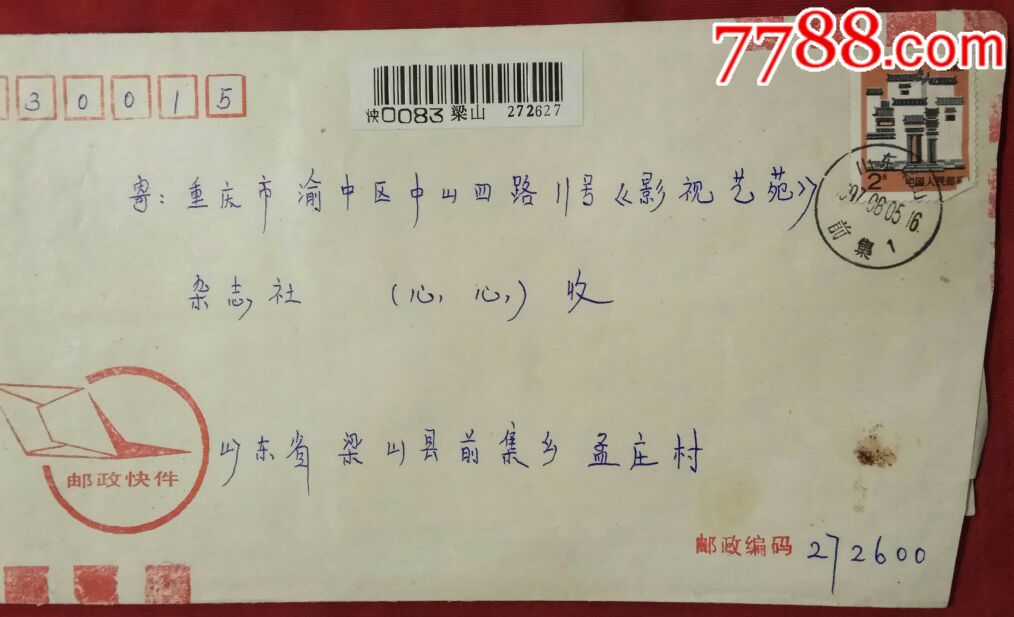 7788.com
30015
快0083 梁山 272627
2元
中国人民邮
山东
1997.08.05.16.
前集1
寄:重庆市渝中区中山四路11号《影视艺苑》
杂志社 (心心) 收
邮政快件
山东省梁山县前集乡孟庄村
邮政编码 272600